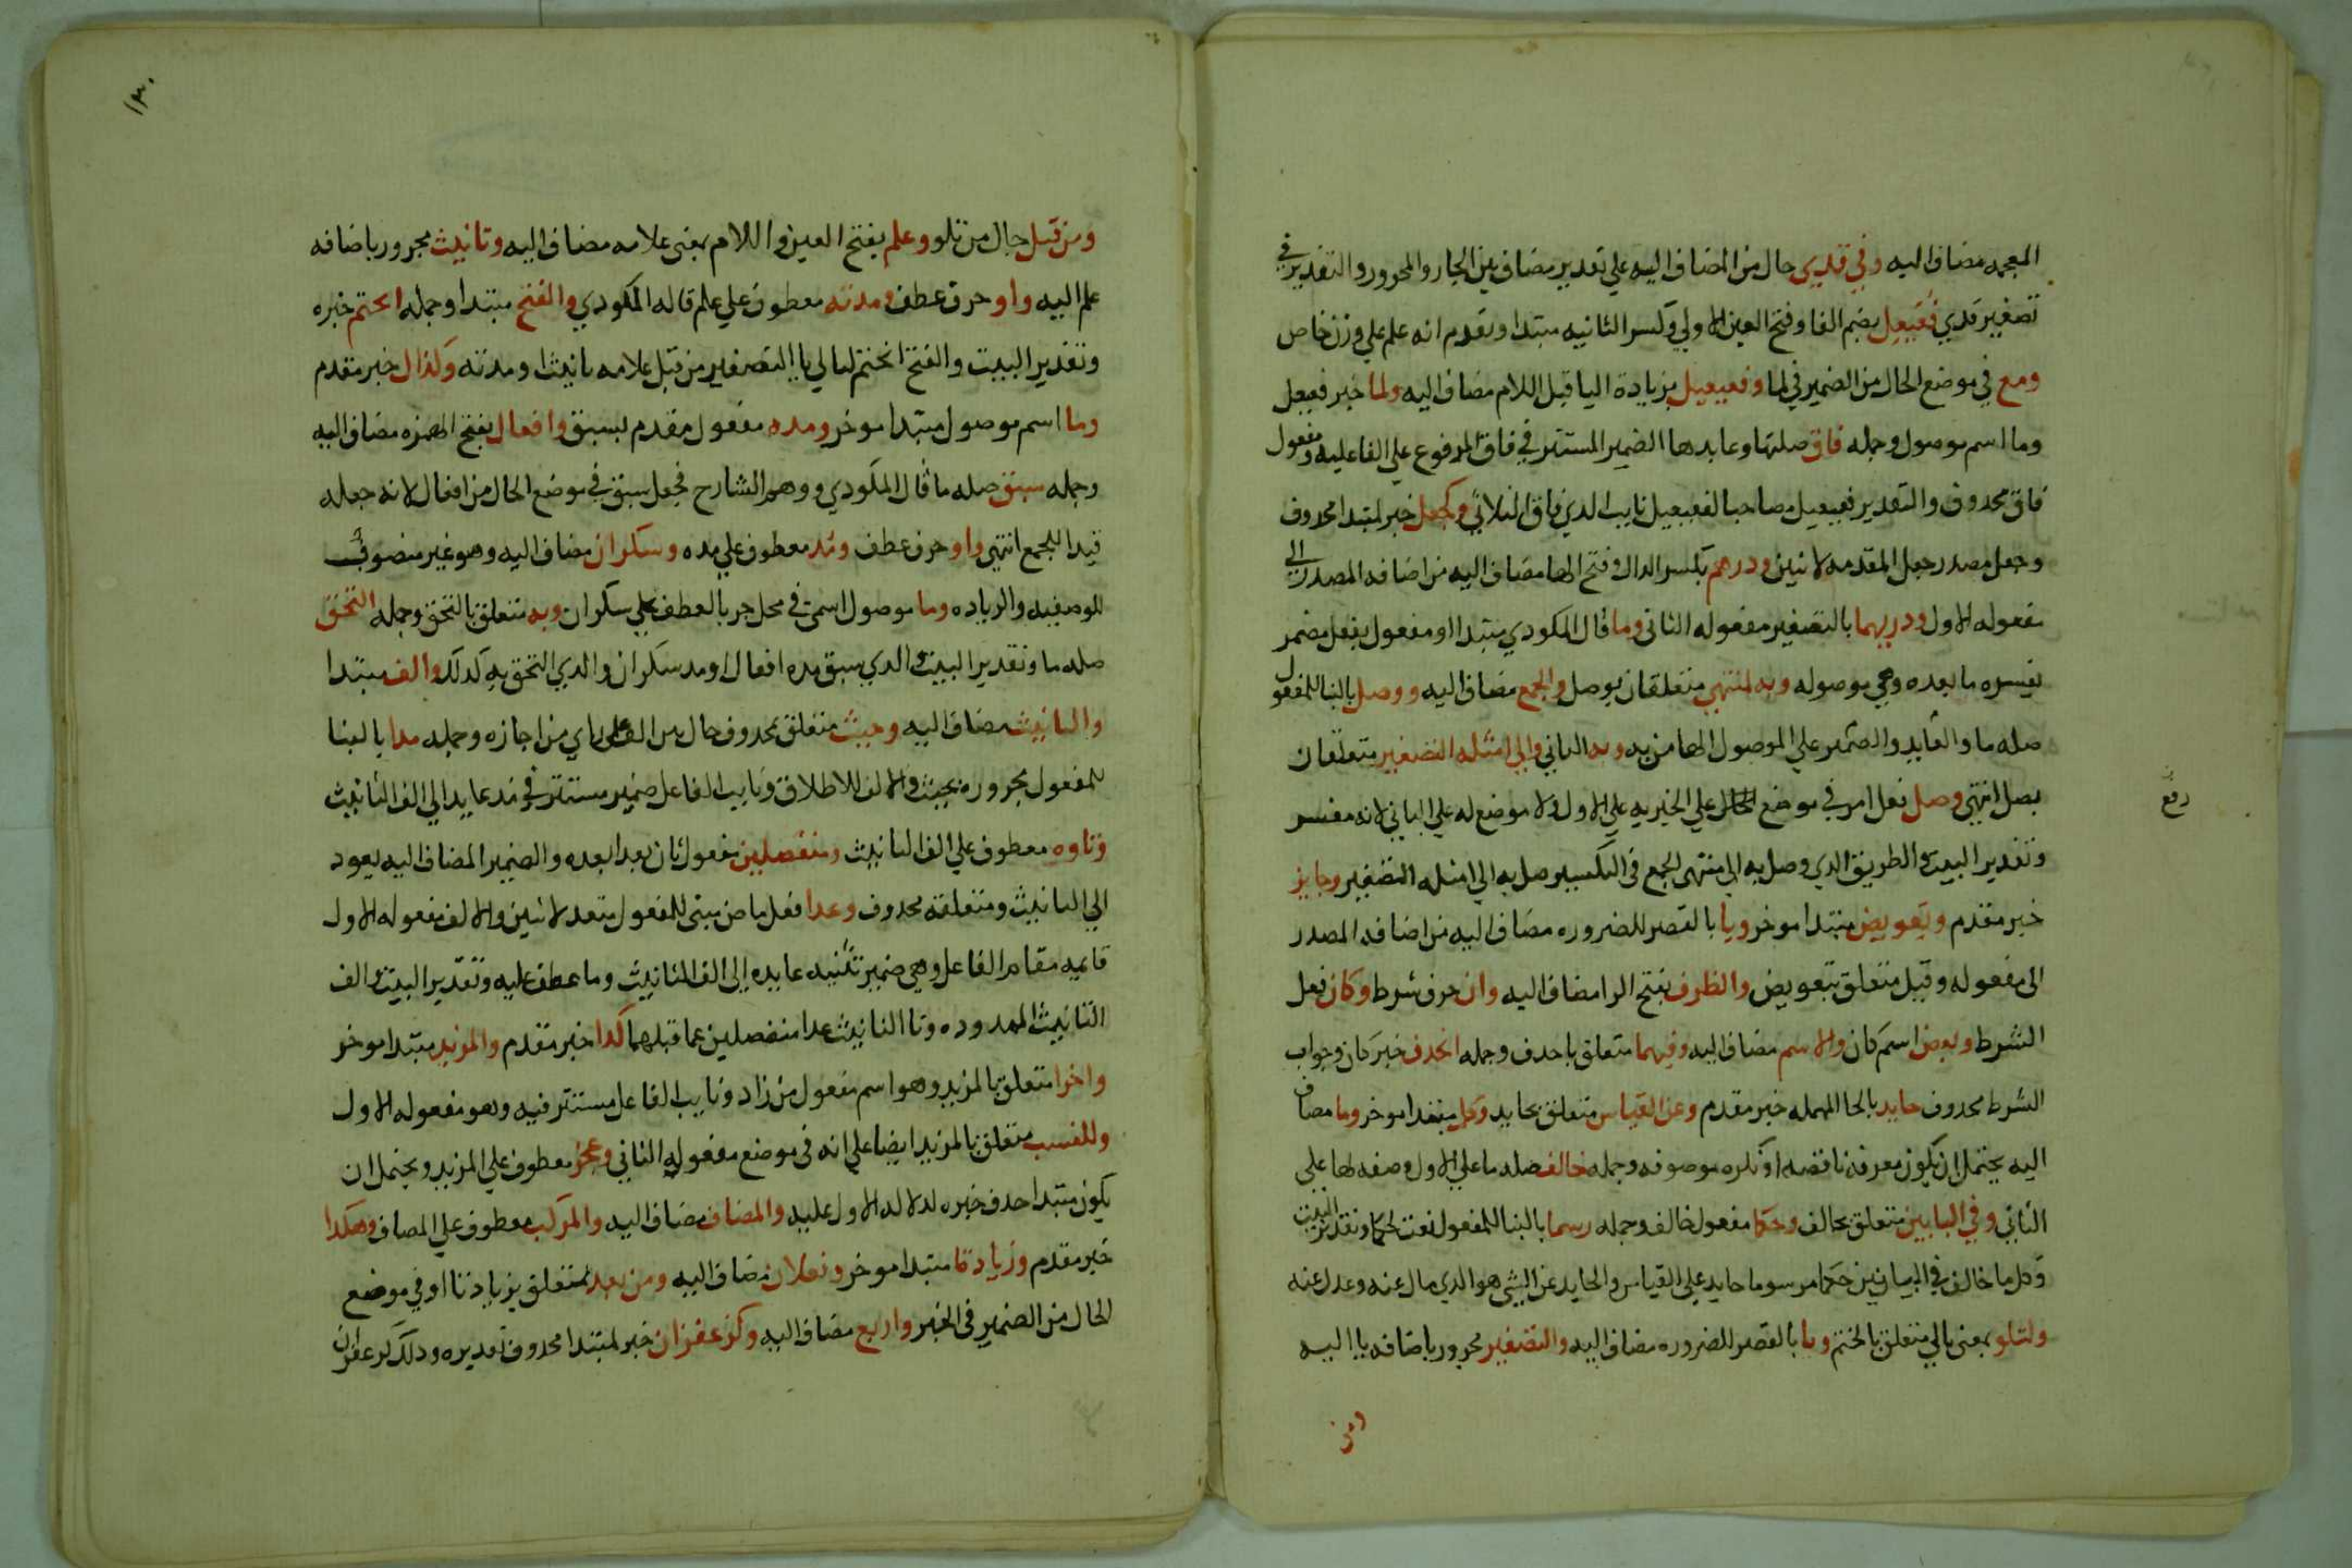 المعجمه مضاف اليه وفي قذي حال من المضاف اليه علي تقدير مضاف بين الجار والمجرور والتقدير في
تصغير قذي فعيعل بضم الفا وفتح العين الاولي وكسر الثانيه مبتدا وتقدم انه علم علي وزن خاص
ومع في موضع الحال من الضمير في لما وفعيعيل بزيادة اليا قبل اللام مضاف اليه ولما خبر فعيعل
وما اسم موصول وجمله فاق صلتها وعايدها الضمير المستتر في فاق المرفوع علي الفاعليه ومفعول
فاق محذوف والتقدير فعيعيل مصاحبا لفعيعيل نايب الذي فاق الثلاثي وكجعل خبر لمبتدا محذوف
وجعل مصدر جعل المقدمه لاثنين ودرهم بكسر الدال وفتح الها مضاف اليه من اضافه المصدر الي
مفعوله الاول ودريهما بالتصغير مفعوله الثاني وما قال المكودي مبتدا او مفعول بفعل مضمر
يفسره ما بعده وهي موصوله وبه لمنتهي متعلقان بوصل والجمع مضاف اليه ووصل بالبنا للمفعول
صله ما والعايد والضمير علي الموصول الها من به وبه الثاني والي امثله التصغير متعلقان
بصل انتهي وصل فعل امر في موضع الحال علي الخبريه علي الاول ولا موضع له علي الثاني لانه مفسر
وتقدير البيت والطريق الذي وصل به الي منتهي الجمع في التكسير صل به الي امثله التصغير وجايز
خبر مقدم وتعويض مبتدا موخر ويا بالقصر للضروره مضاف اليه من اضافه المصدر
الى مفعوله وقبل متعلق بتعويض والظرف بفتح الرا مضاف اليه وان حرف شرط وكان فعل
الشرط وبعض اسم كان والاسم مضاف اليه وفيهما متعلق بانحذف وجمله انحذف خبر كان وجواب
الشرط محذوف حايد بالحا المهمله خبر مقدم وعن القياس متعلق بحايد وكل مبتدا موخر وما مضاف
اليه يحتمل ان يكون معرفه ناقصه او نكره موصوفه وجمله خالف صله ما علي الاول وصفه لها علي
الثاني وفي البابين متعلق بخالف وحكما مفعول خالف وجمله رسما بالبنا للمفعول نعت لحكما وتقدير البيت
وكل ما خالف في البابين حكما مرسوما حايد علي القياس والحايد عن الشي هو الذي مال عنه وعدل عنه
ولتلو بمعنى تالي متعلق بالختم ويا بالقصر للضروره مضاف اليه والتصغير مجرور باضافه يا اليه
رفع
ومن
١٣٠
ومن قبل حال من تلو وعلم بفتح العين واللام بمعنى علامه مضاف اليه وتانيث مجرور باضافه
علم اليه واو حرف عطف ومدته معطوف علي علم قاله المكودي والفتح مبتدا وجمله انحتم خبره
وتقدير البيت والفتح انحتم لتالي يا التصغير من قبل علامه تانيث او مدته وكذا ال خبر مقدم
وما اسم موصول مبتدا موخر ومده مفعول مقدم لسبق وافعال بفتح الهمزه مضاف اليه
وجمله سبق صله ما قال المكودي ووهم الشارح فجعل سبق في موضع الحال من افعال لانه جعله
قيدا للجمع انتهي واو حرف عطف ومد معطوف علي مده وسكران مضاف اليه وهو غير منصرف
للوصفيه والزياده وما موصول اسمي في محل جر بالعطف علي سكران وبه متعلق بالتحق وجمله التحق
صله ما وتقدير البيت والذي سبق مده افعال او مد سكران والذي التحق به كذلك والف مبتدا
والتانيث مضاف اليه وحيث متعلق بمحذوف حال من الف علي راي من اجازه وجمله مدا بالبنا
للمفعول مجروره بحيث والالف للاطلاق ونايب الفاعل ضمير مستتر في مد عايد الي الف التانيث
وتاوه معطوف علي الف التانيث ومنفصلين مفعول ثان بعدا بعده والضمير المضاف اليه يعود
الي التانيث ومتعلقه محذوف وعدا فعل ماض مبني للمفعول متعد لاثنين والالف مفعوله الاول
قايمه مقام الفاعل وهي ضمير تثنيه عايده الي الف التانيث وما عطف عليه وتقدير البيت والف
التانيث الممدوده وتا التانيث عدا منفصلين عما قبلهما كذا خبر مقدم والمزيد مبتدا موخر
واخرا متعلق بالمزيد وهو اسم مفعول من زاد ونايب الفاعل مستتر فيه وهو مفعوله الاول
وللنسب متعلق بالمزيد ايضا علي انه في موضع مفعوله الثاني وعجز معطوف علي المزيد ويحتمل ان
يكون مبتدا حذف خبره لدلاله الاول عليه والمضاف مضاف اليه والمركب معطوف علي المضاف وهكذا
خبر مقدم وزيادتا مبتدا موخر وفعلان مضاف اليه ومن بعد متعلق بزيادتا او في موضع
الحال من الضمير في الخبر واربع مضاف اليه وكزعفران خبر لمبتدا محذوف تقديره وذلك كزعفران